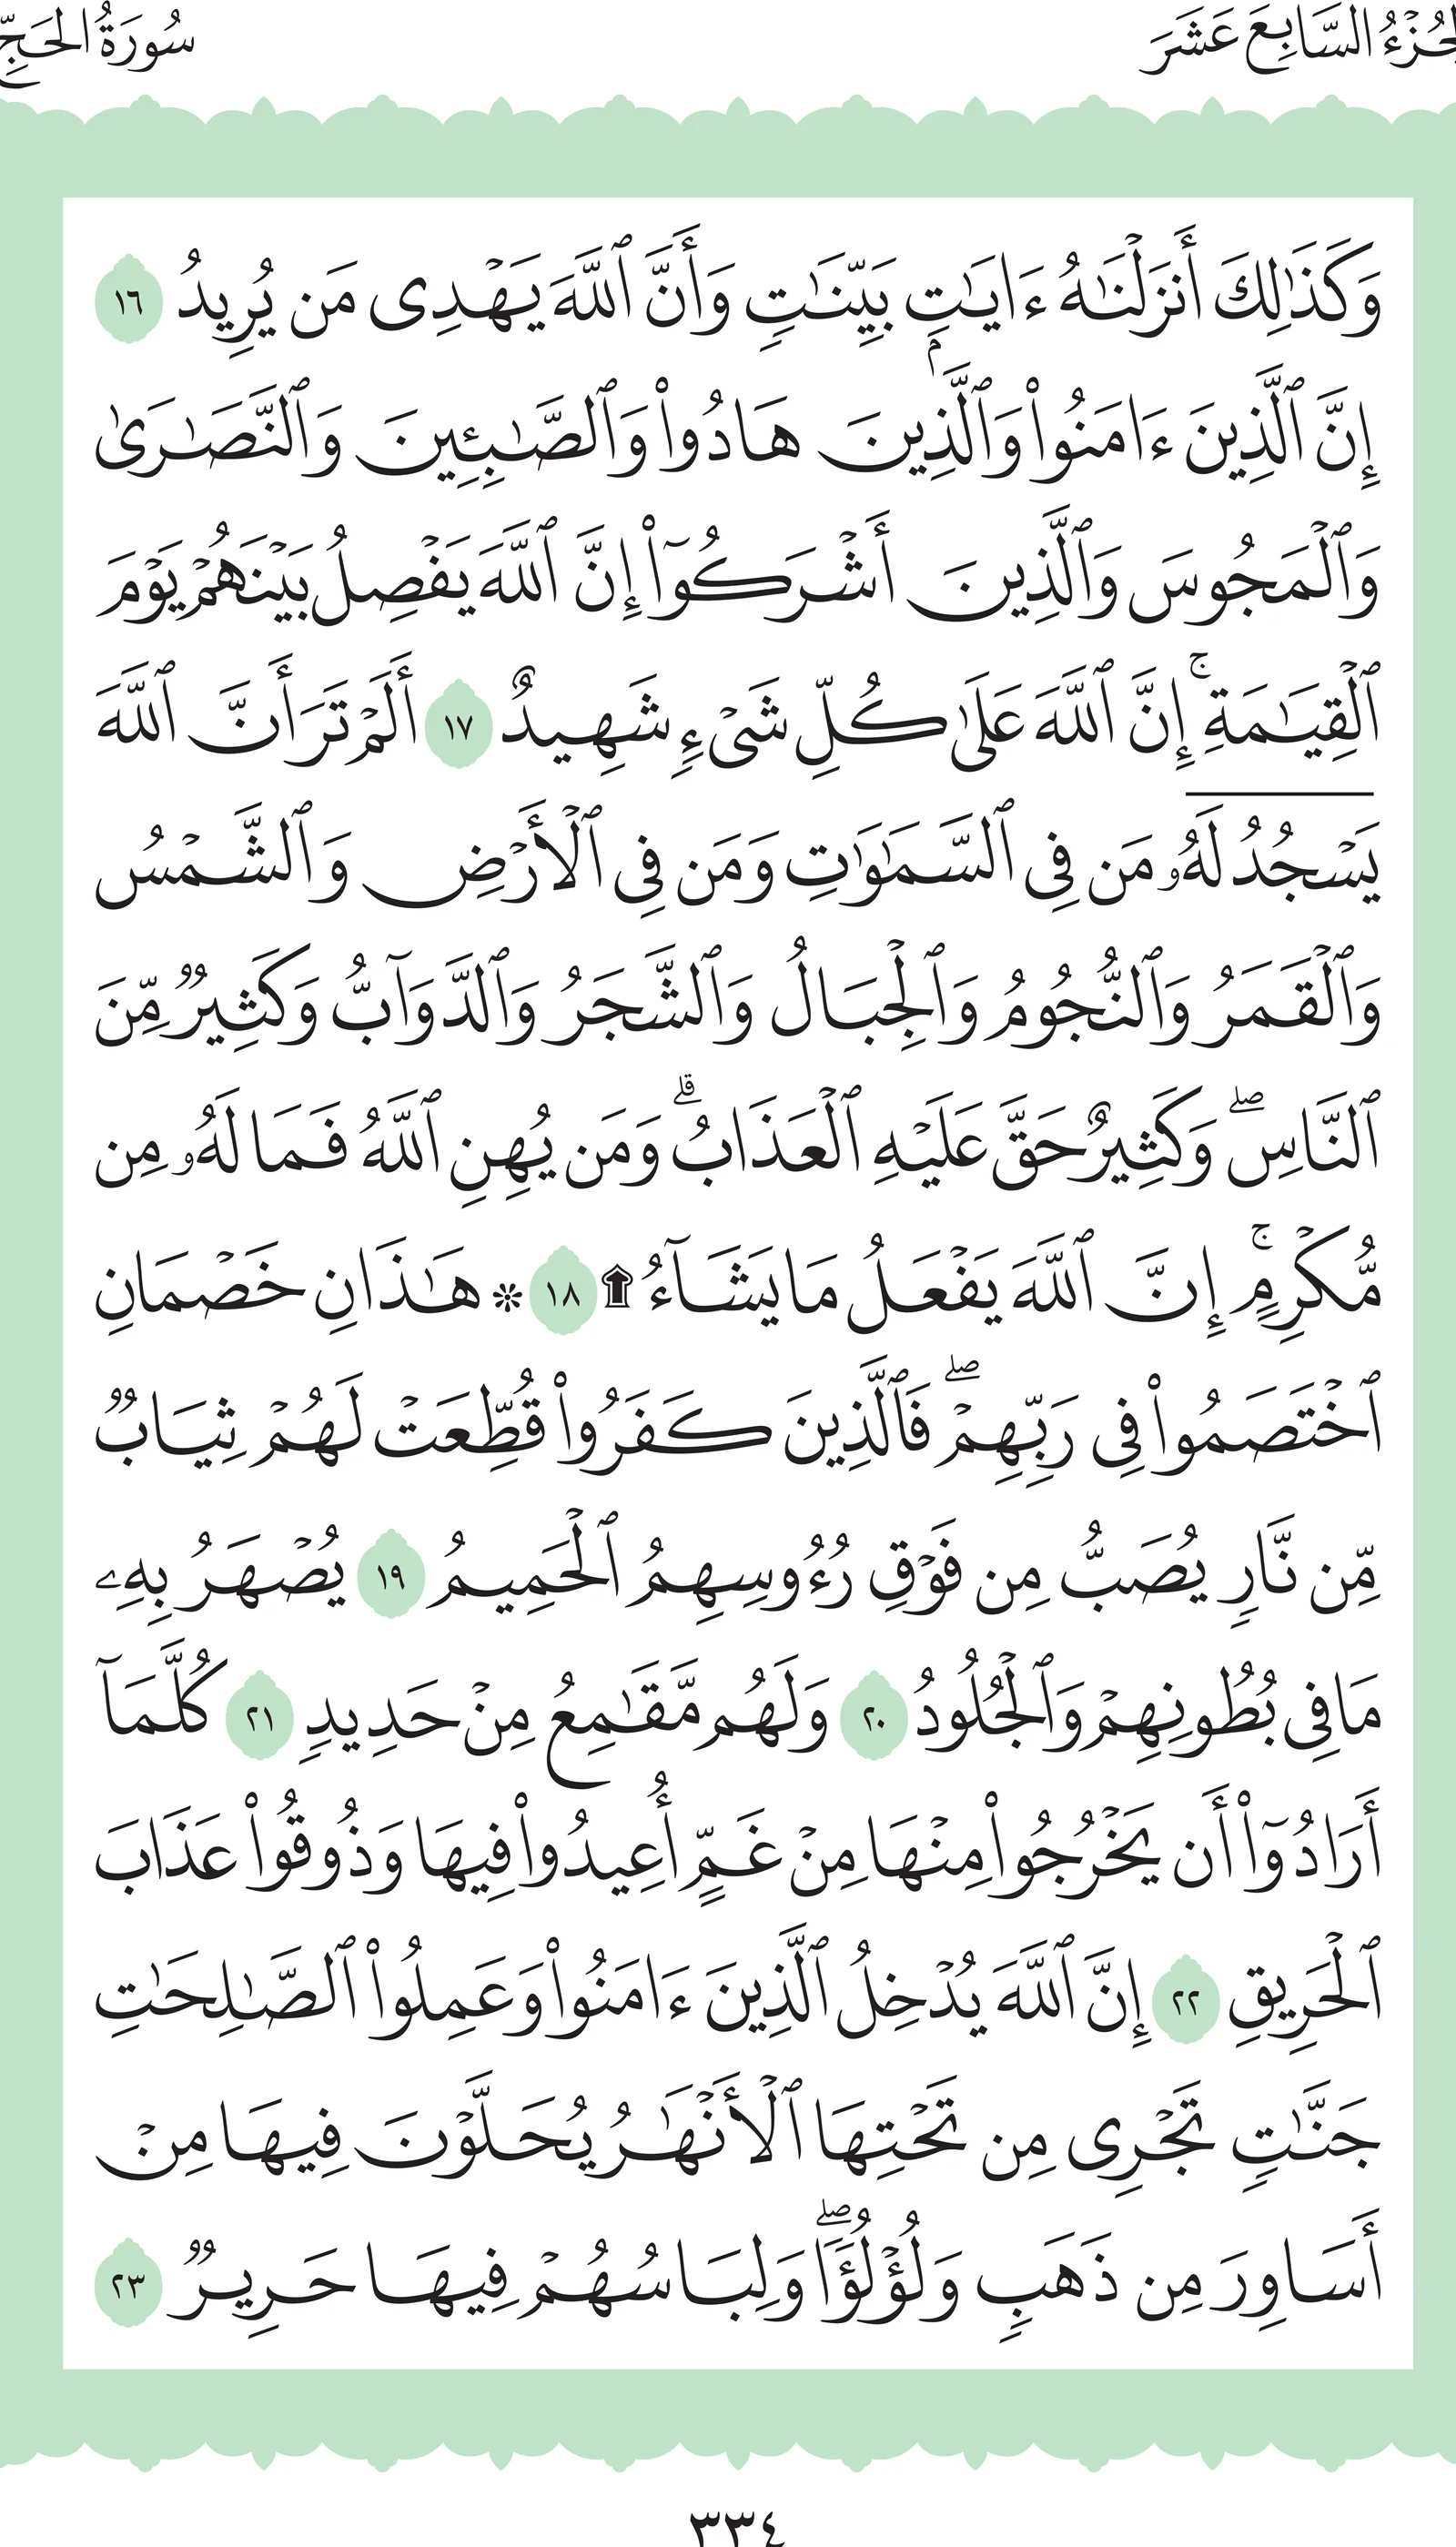 الجُزْءُ السَّابِعَ عَشَرَ سُورَةُ الحَجِّ
وَكَذَٰلِكَ أَنزَلْنَٰهُ ءَايَٰتٍۭ بَيِّنَٰتٍ وَأَنَّ ٱللَّهَ يَهْدِى مَن يُرِيدُ ١٦
إِنَّ ٱلَّذِينَ ءَامَنُوا۟ وَٱلَّذِينَ هَادُوا۟ وَٱلصَّٰبِـِٔينَ وَٱلنَّصَٰرَىٰ
وَٱلْمَجُوسَ وَٱلَّذِينَ أَشْرَكُوٓا۟ إِنَّ ٱللَّهَ يَفْصِلُ بَيْنَهُمْ يَوْمَ
ٱلْقِيَٰمَةِ ۚ إِنَّ ٱللَّهَ عَلَىٰ كُلِّ شَىْءٍ شَهِيدٌ ١٧ أَلَمْ تَرَ أَنَّ ٱللَّهَ
يَسْجُدُ لَهُۥ مَن فِى ٱلسَّمَٰوَٰتِ وَمَن فِى ٱلْأَرْضِ وَٱلشَّمْسُ
وَٱلْقَمَرُ وَٱلنُّجُومُ وَٱلْجِبَالُ وَٱلشَّجَرُ وَٱلدَّوَآبُّ وَكَثِيرٌ مِّنَ
ٱلنَّاسِ ۖ وَكَثِيرٌ حَقَّ عَلَيْهِ ٱلْعَذَابُ ۗ وَمَن يُهِنِ ٱللَّهُ فَمَا لَهُۥ مِن
مُّكْرِمٍ ۚ إِنَّ ٱللَّهَ يَفْعَلُ مَا يَشَآءُ ۩ ١٨ * هَٰذَانِ خَصْمَانِ
ٱخْتَصَمُوا۟ فِى رَبِّهِمْ ۖ فَٱلَّذِينَ كَفَرُوا۟ قُطِّعَتْ لَهُمْ ثِيَابٌ
مِّن نَّارٍ يُصَبُّ مِن فَوْقِ رُءُوسِهِمُ ٱلْحَمِيمُ ١٩ يُصْهَرُ بِهِۦ
مَا فِى بُطُونِهِمْ وَٱلْجُلُودُ ٢٠ وَلَهُم مَّقَٰمِعُ مِنْ حَدِيدٍ ٢١ كُلَّمَآ
أَرَادُوٓا۟ أَن يَخْرُجُوا۟ مِنْهَا مِنْ غَمٍّ أُعِيدُوا۟ فِيهَا وَذُوقُوا۟ عَذَابَ
ٱلْحَرِيقِ ٢٢ إِنَّ ٱللَّهَ يُدْخِلُ ٱلَّذِينَ ءَامَنُوا۟ وَعَمِلُوا۟ ٱلصَّٰلِحَٰتِ
جَنَّٰتٍ تَجْرِى مِن تَحْتِهَا ٱلْأَنْهَٰرُ يُحَلَّوْنَ فِيهَا مِنْ
أَسَاوِرَ مِن ذَهَبٍ وَلُؤْلُؤًا ۖ وَلِبَاسُهُمْ فِيهَا حَرِيرٌ ٢٣
٣٣٤